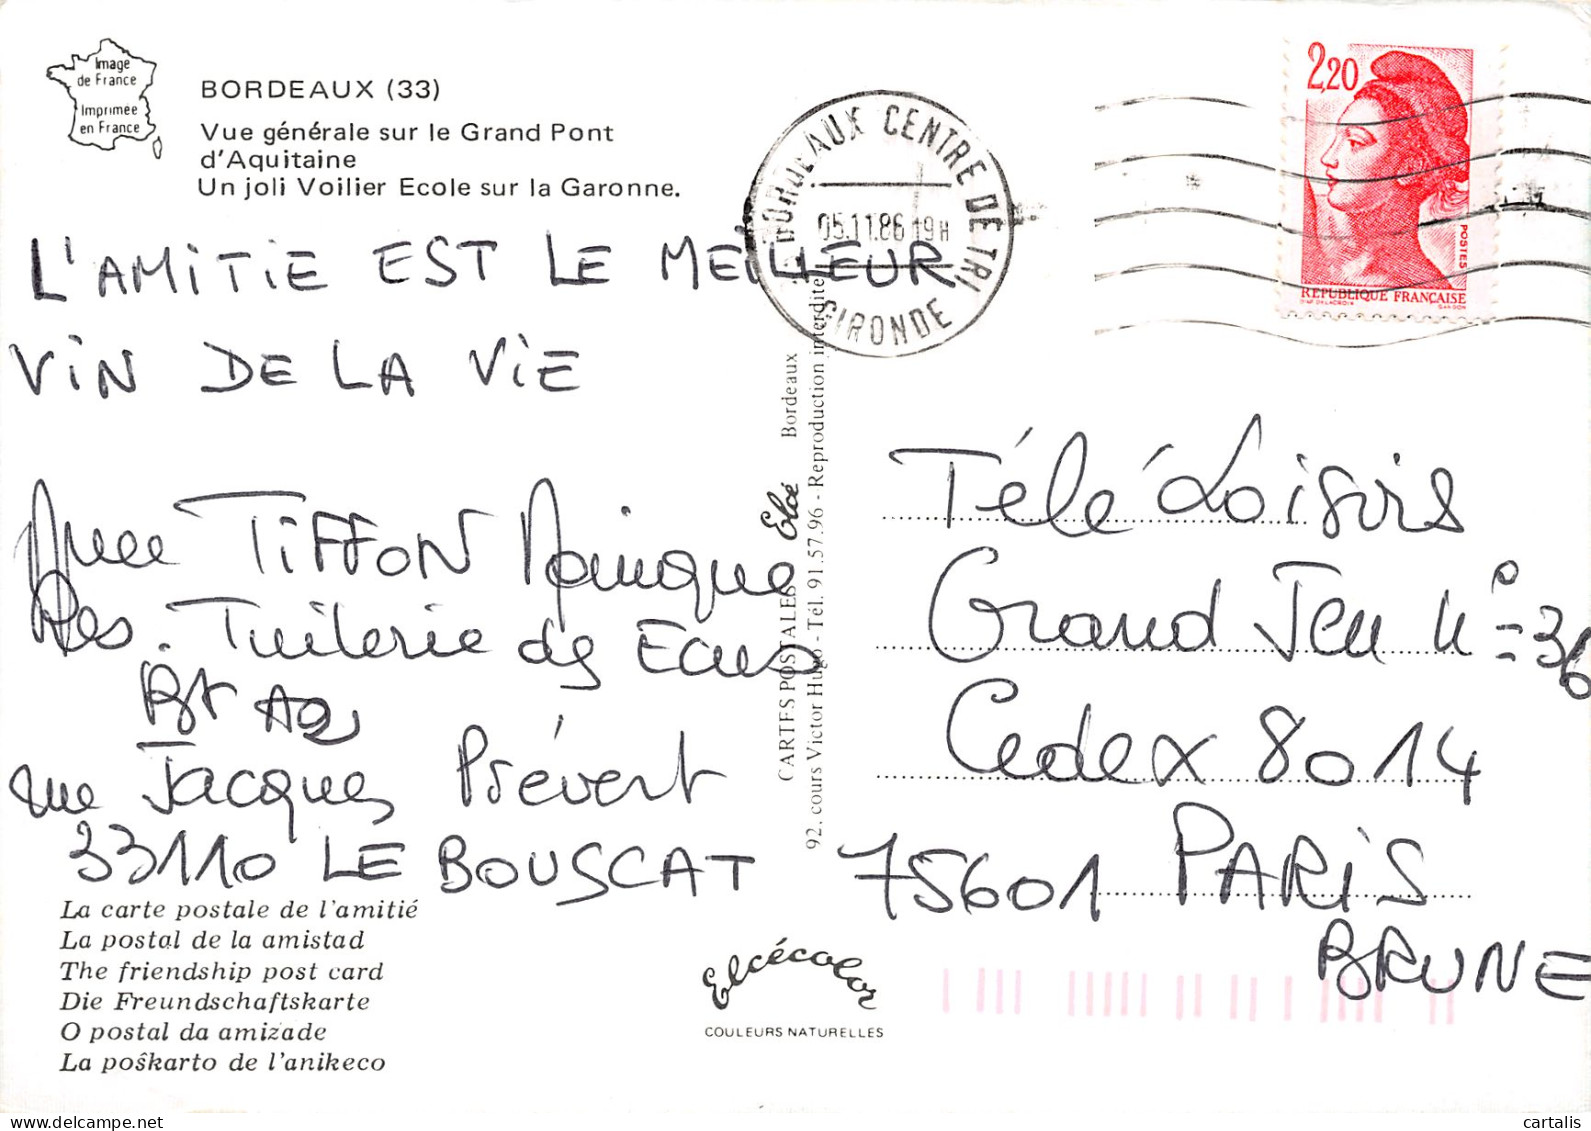 Image
de France
Imprimée
en France
BORDEAUX (33)
Vue générale sur le Grand Pont
d'Aquitaine
Un joli Voilier Ecole sur la Garonne.
BORDEAUX CENTRE DE TRI
05.11.86 19H
GIRONDE
2,20
POSTES
REPUBLIQUE FRANÇAISE
D'AP. DELACROIX GANDON
L'AMITIE EST LE MEILLEUR
VIN DE LA VIE
TIFFON
Res. Tuilerie des Ecus
Bt A2
rue Jacques Prévert
33110 LE BOUSCAT
CARTES POSTALES Elcé Bordeaux
92. cours Victor Hugo - Tél. 91.57.96 - Reproduction interdite
Télé Loisirs
Grand Jeu n° 36
Cedex 8014
75601 PARIS
BRUNE
La carte postale de l'amitié
La postal de la amistad
The friendship post card
Die Freundschaftskarte
O postal da amizade
La poŝkarto de l'anikeco
Elcécolor
COULEURS NATURELLES
delcampe.net
cartalis